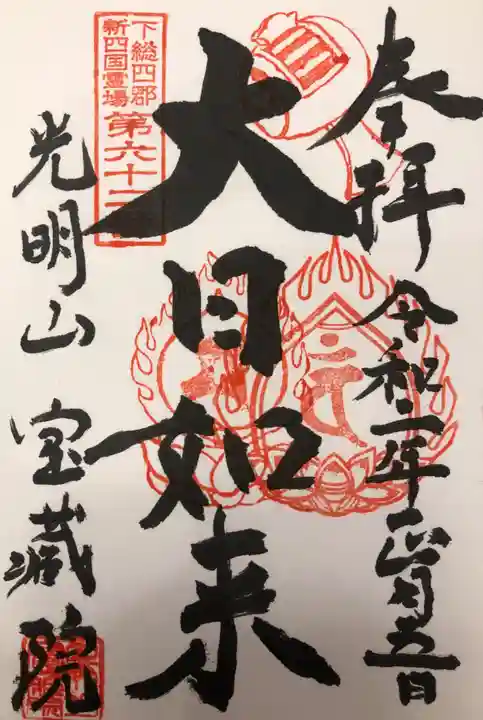 奉拝 令和二年正月五日
大日如来
下総四郡
新四国霊場 第六十二
光明山 宝蔵院